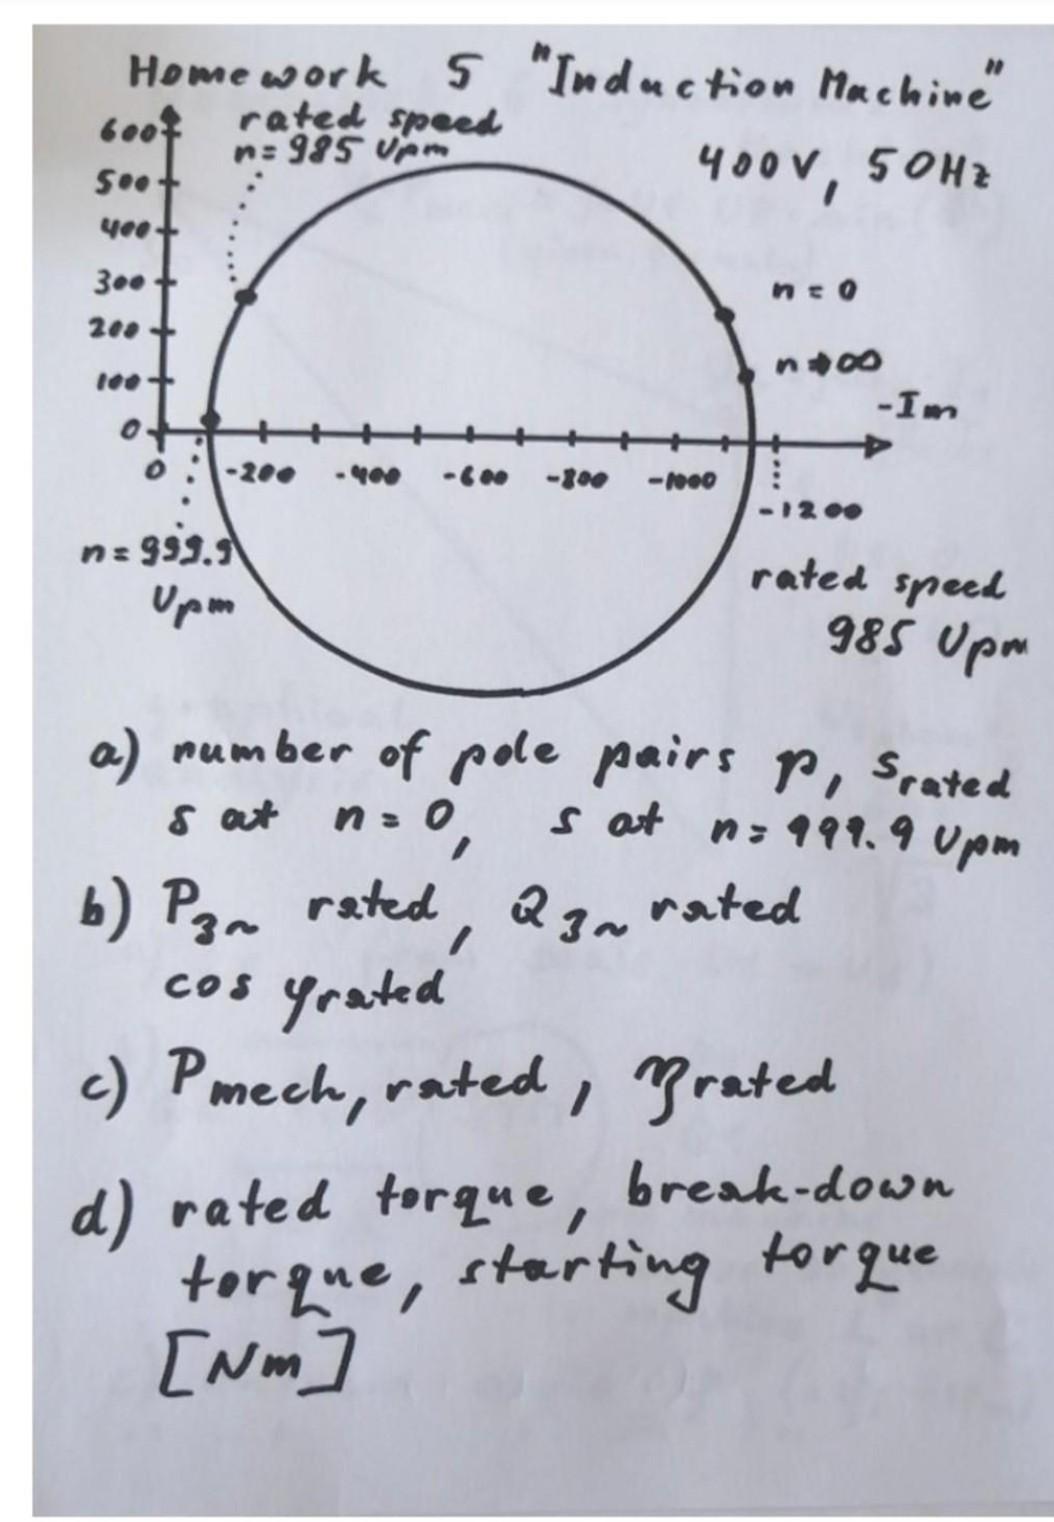 Homework 5 "Induction Machine"
600
rated speed
n=985 Upm
400V, 50Hz
500
400
300
n=0
200
100
n→∞
-Im
0
0
-200
-400
-600
-800
-1000
-1200
n=999.9
Upm
rated speed
985 Upm
a) number of pole pairs p, srated
s at n=0, s at n=999.9 Upm
b) P3~ rated, Q3~ rated
cos φrated
c) Pmech, rated, ηrated
d) rated torque, break-down
torque, starting torque
[Nm]